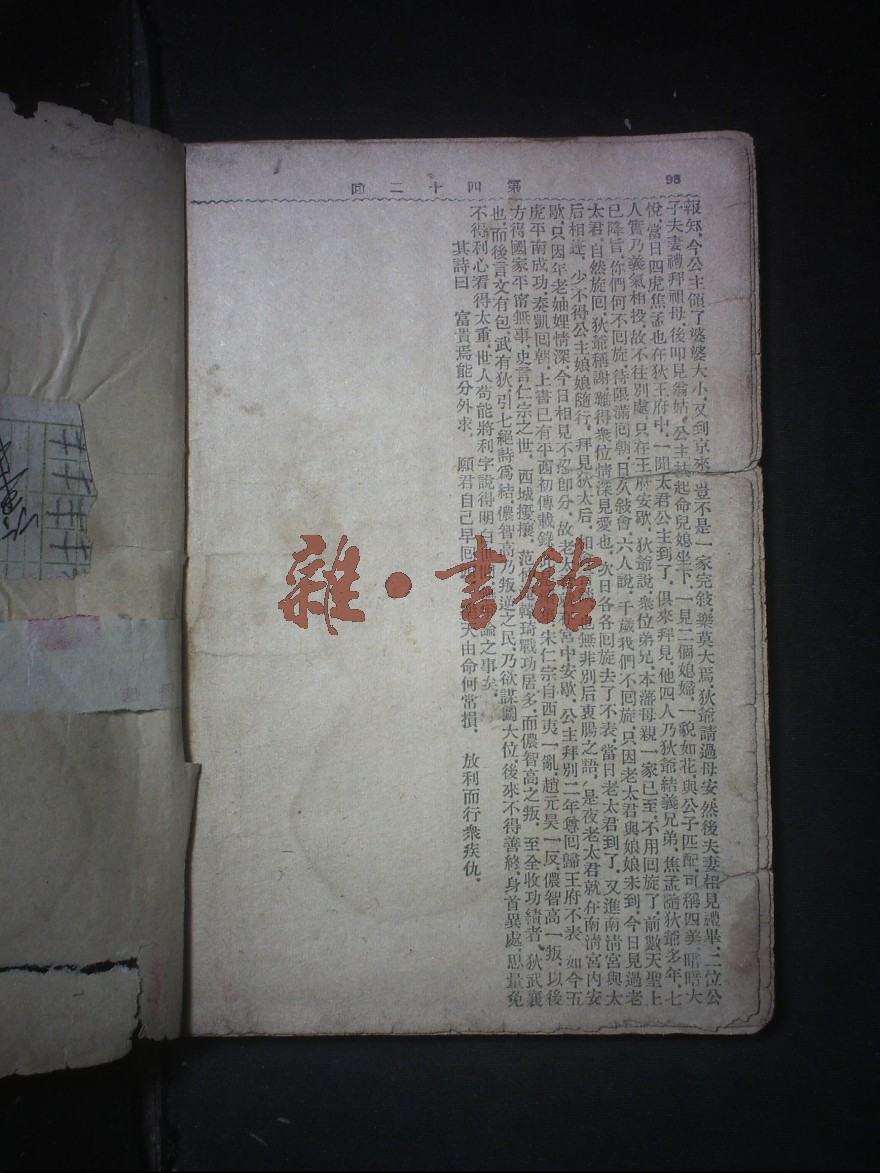 第四十二回
98
報知,今公主領了婆婆大小,又到京來,豈不是一家完敍,樂莫大焉,狄爺請過母安,然後夫妻相見禮畢,二位公
子夫妻禮拜祖母後叩見翁姑,公主起命兒媳坐下,一見二個媳婦,一貌如花,與公子匹配,可稱四美,暗暗大
悅,當日四虎焦孟也在狄王府中,一聞太君公主到了,俱來拜見,他四人乃狄爺結義兄弟,焦孟隨狄爺多年,七
人實乃義氣相投,故不往別處,只在王府安歇,狄爺說,衆位弟兄,本藩母親一家已至,不用回旋了,前數天聖上
已降旨,你們何不回旋,待限滿回朝,日久敍會,六人說,千歲我們不回旋,只因老太君與娘娘未到,今日見過老
太君,自然旋回,狄爺稱謝,難得衆位情深見愛也,次日各各回旋去了不表,當日老太君到了,又進南淸宮與太
后相逢,少不得公主娘娘隨行,拜見狄太后,相 也無非別后衷腸之語,是夜老太君就在南淸宮內安
歇,只因年老妯娌情深,今日相見不忍卽分,故老太 宮中安歇,公主拜別二年尊回歸王府不表,如今五
虎平南成功奏凱回朝,上書已有平西初傳載錄 宋仁宗自西夷一亂,趙元昊一反,儂智高一叛,以後
方得國家平甯無事,史言仁宗之世,西城擾攘,范 韓琦戰功居多,而儂智高之叛,至全收功績者,狄武襄
也,而後言文有包,武有狄,引七絕詩爲結,儂智高乃叛逆之民,乃欲謀圖大位,後來不得善終,身首異處,思量免
不得利心看得太重,世人苟能將利字說得明白 論之事矣,
其詩曰 富貴焉能分外求, 願君自己早回 天由命何常損, 放利而行衆疾仇,
雜·書館